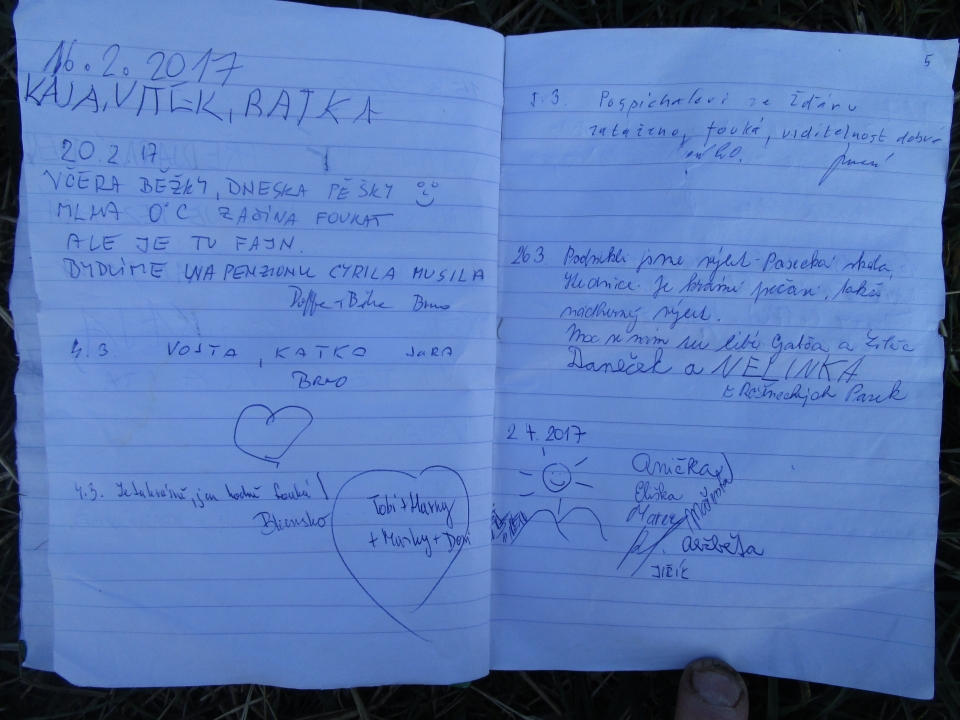 16.2.2017
KÁJA, VÍTĚK, RATKA
20.2 17
VČERA BĚŽKY, DNESKA PĚŠKY
MLHA 0°C ZAČÍNA FOUKAT
ALE JE TU FAJN.
BYDLÍME NA PENZIONU CYRILA MUSILA
Brno
4.3 VOJTA, KATKA JARA
BRNO
4.3. Je to krásné, jen hodně fouká!
Blanensko
Tobi + Harry
+ Marky + Dori
5
5.3. Pospíchalovi ze Žďáru
zataženo, fouká, viditelnost dobrá
26.3 Podnikli jsme výlet - Pasecká skála,
Žlednice. Je krásné počasí, také
nádherný výlet.
Moc se nám tu líbí
Daneček a NELINKA
z Rožneckých Pasek
2.4.2017
Anička
Eliška
Matěj
Markéta
Alžběta
JIŘÍK